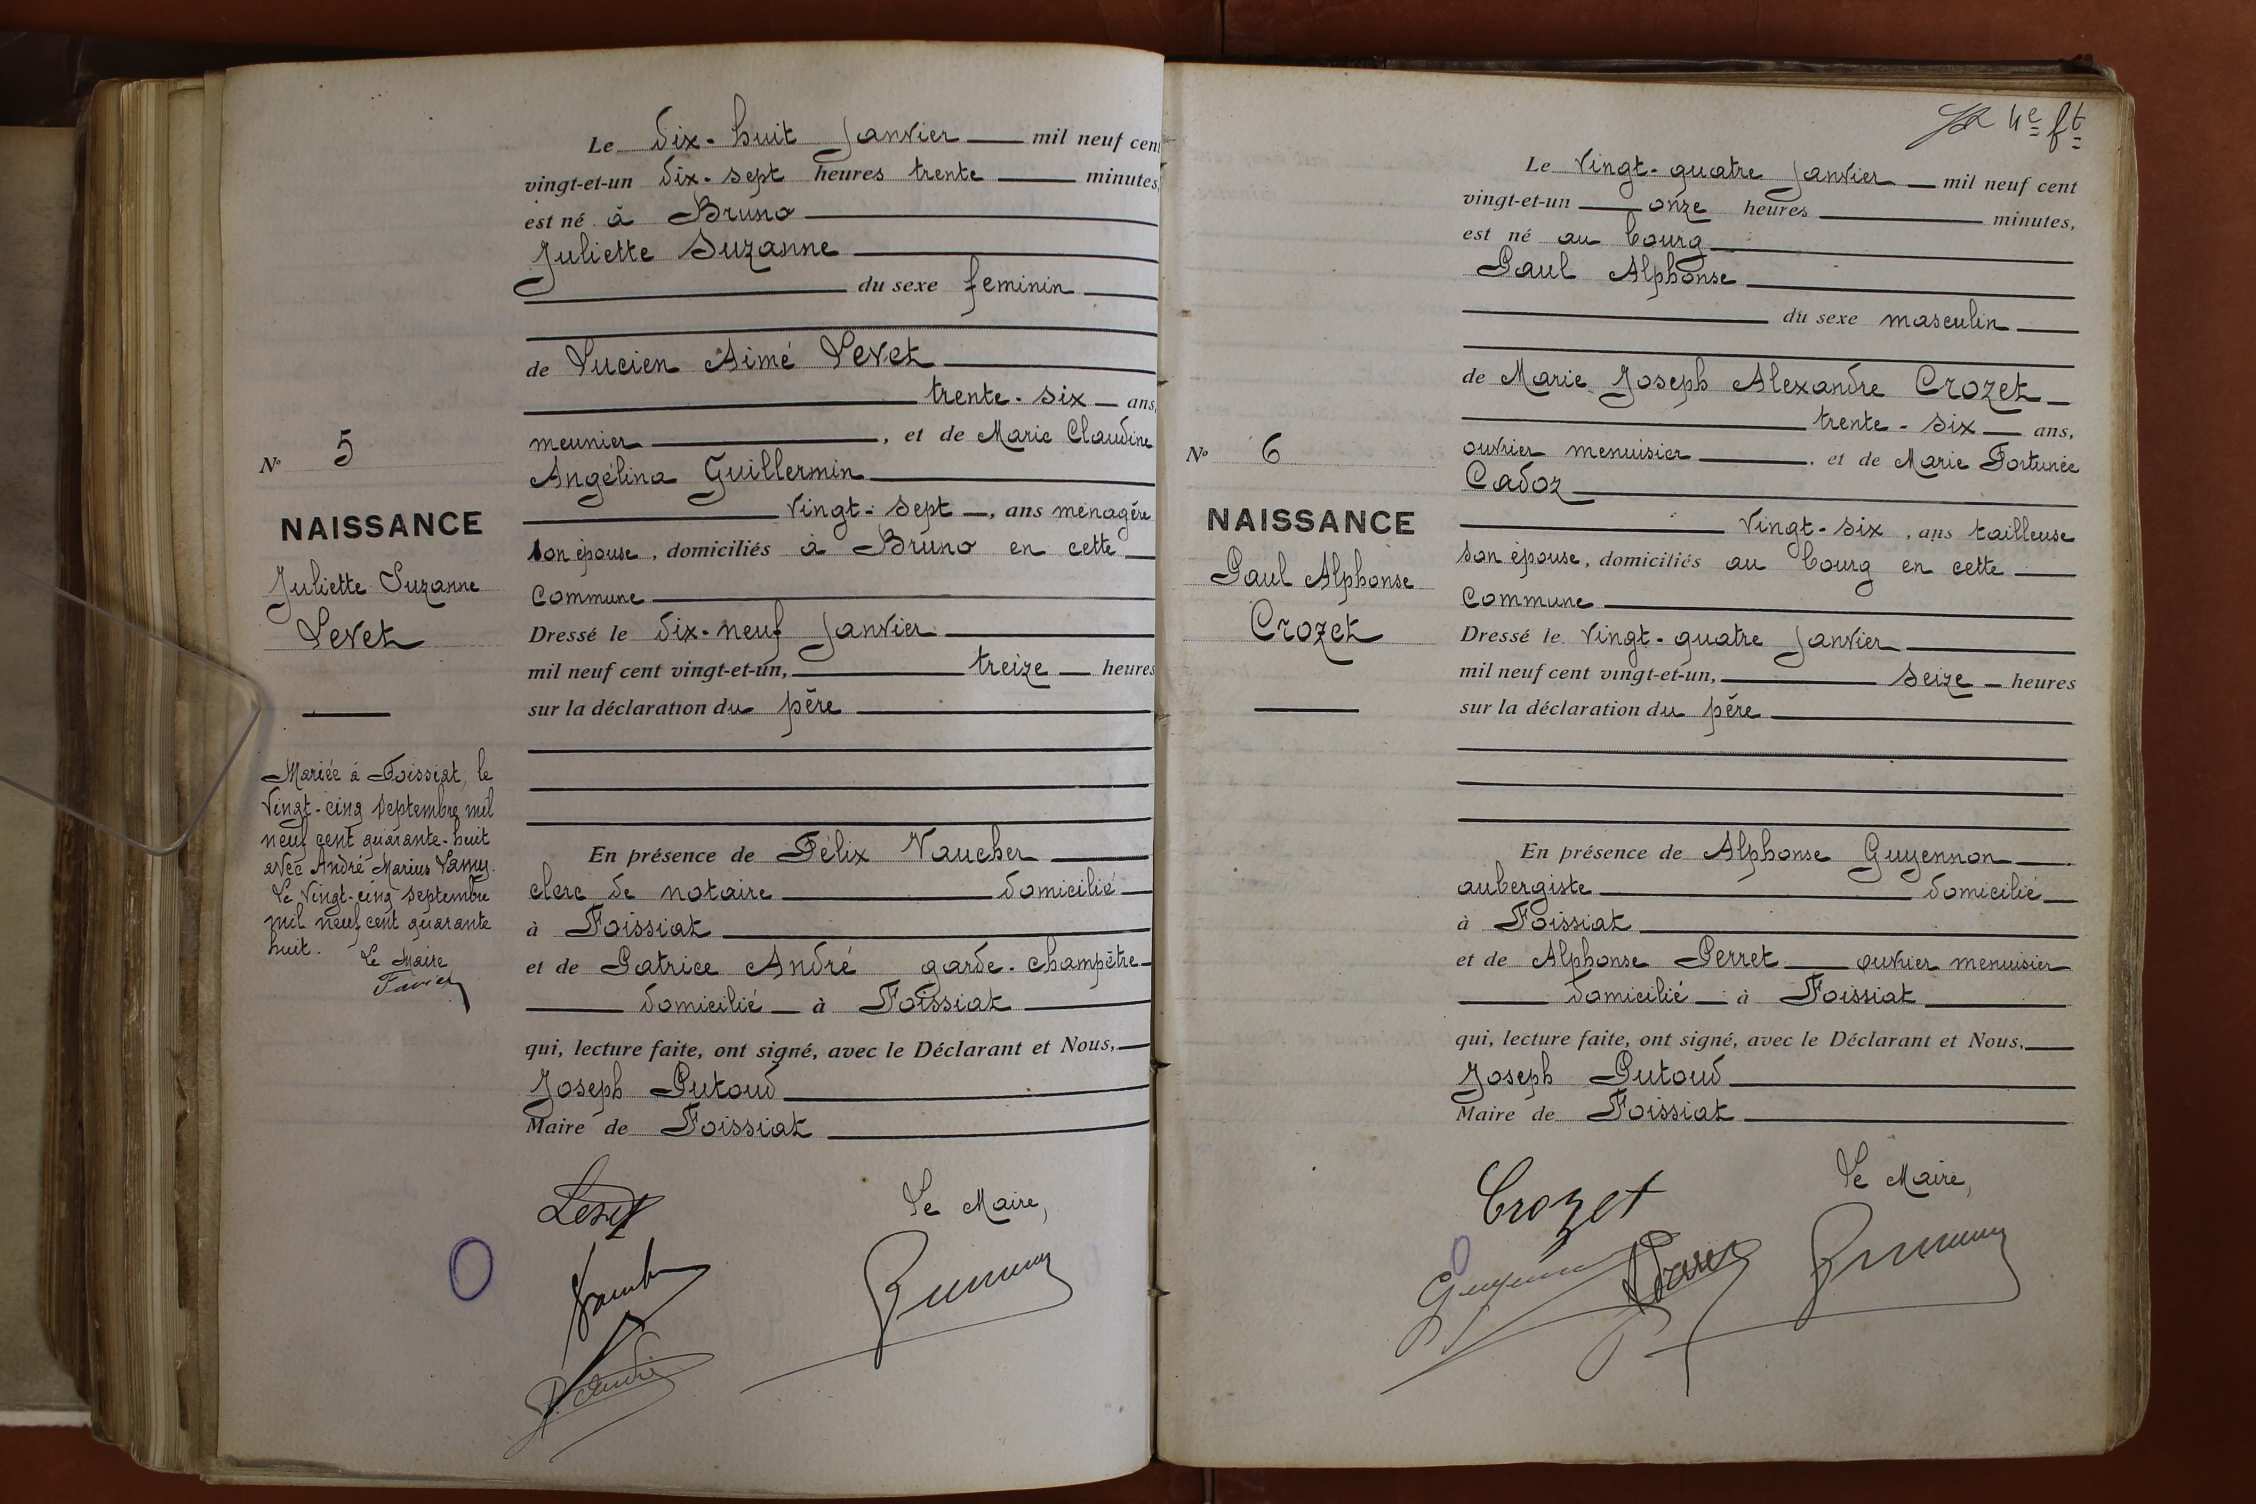 Le dix-huit Janvier mil neuf cent
vingt-et-un dix-sept heures trente minutes,
est né à Bruno
Juliette Suzanne
du sexe feminin
de Lucien Aimé Levet
trente-six ans,
meunier, et de Marie Claudine
Angélina Guillermin
vingt-sept, ans menagère
son épouse, domiciliés à Bruno en cette
Commune
Dressé le dix-neuf Janvier
mil neuf cent vingt-et-un, treize heures
sur la déclaration du père
En présence de Félix Vaucher
clerc de notaire domicilié
à Foissiat
et de Patrice André garde-champêtre
domicilié à Foissiat
qui, lecture faite, ont signé, avec le Déclarant et Nous,
Joseph Putoud
Maire de Foissiat
Levet
Le Maire,
P. André
No 5
NAISSANCE
Juliette Suzanne
Levet
Mariée à Foissiat, le
vingt-cinq septembre mil
neuf cent quarante-huit
avec André Marius Lamy.
Le vingt-cinq septembre
mil neuf cent quarante
huit.
Le Maire
Favier
4e ft
Le vingt-quatre Janvier mil neuf cent
vingt-et-un onze heures minutes,
est né au bourg
Paul Alphonse
du sexe masculin
de Marie Joseph Alexandre Crozet
trente-six ans,
ouvrier menuisier, et de Marie Fortunée
Cadoz
vingt-six, ans tailleuse
son épouse, domiciliés au bourg en cette
Commune
Dressé le vingt-quatre Janvier
mil neuf cent vingt-et-un, seize heures
sur la déclaration du père
En présence de Alphonse Guyennon
aubergiste domicilié
à Foissiat
et de Alphonse Perret ouvrier menuisier
domicilié à Foissiat
qui, lecture faite, ont signé, avec le Déclarant et Nous,
Joseph Putoud
Maire de Foissiat
Crozet
Le Maire,
No 6
NAISSANCE
Paul Alphonse
Crozet